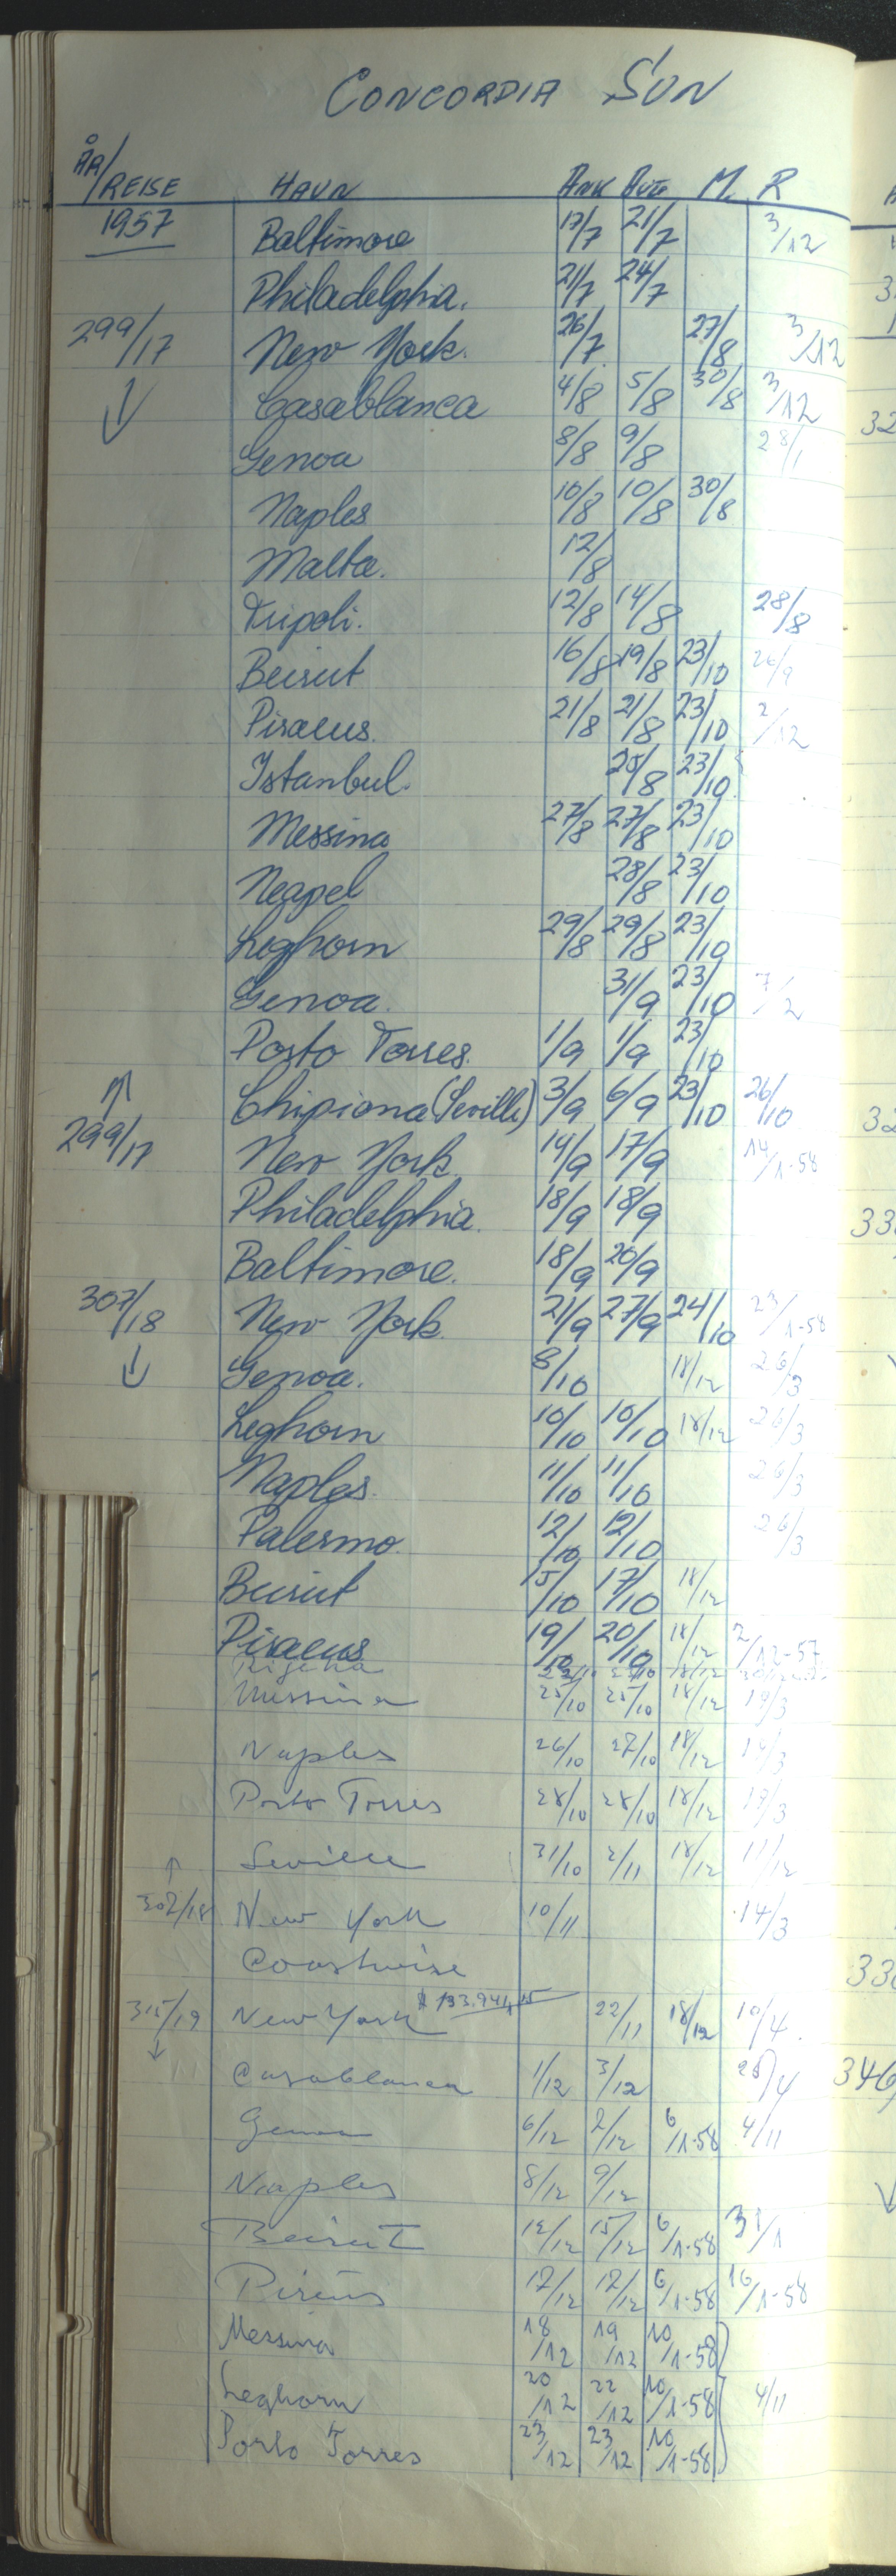 CONCORDIA SUN
ÅR/REISE HAVN ANK AVG M. R
1957 Baltimore 17/7 21/7 3/12
Philadelphia. 21/7 24/7
299/17 New York. 26/7 27/8 3/12
↓ Casablanca 4/8 5/8 30/8 3/12
Genoa 8/8 9/8 28/1
Naples 10/8 10/8 30/8
Malta. 12/8
Tripoli. 12/8 14/8 28/8
Beirut 16/8 19/8 23/10 26/9
Piraeus. 21/8 21/8 23/10 2/12
Istanbul. 25/8 23/10
Messina 27/8 27/8 23/10
Neapel 28/8 23/10
Leghorn 29/8 29/8 23/10
Genoa. 31/9 23/10 7/2
Porto Torres. 1/9 1/9 23/10
↑ Chipiona (Seville) 3/9 6/9 23/10 26/10
299/17 New York 14/9 17/9 14/1-58
Philadelphia. 18/9 18/9
Baltimore. 18/9 20/9
307/18 New York 21/9 27/9 24/10 23/1-58
↓ Genoa. 8/10 18/12 26/3
Leghorn 10/10 10/10 18/12 26/3
Naples. 11/10 11/10 26/3
Palermo. 12/10 12/10 26/3
Beirut 15/10 17/10 18/12
Piraeus 19/10 20/10 18/12 2/12-57
18/12
Messina 25/10 25/10 18/12 19/3
Naples 26/10 27/10 18/12 19/3
Porto Torres 28/10 28/10 18/12 19/3
↑ Seville 31/10 2/11 18/12 11/12
307/18 New York 10/11 14/3
Coastwise
315/19 New York $ 133.944,15 22/11 18/12 10/4
↓ Casablanca 1/12 3/12 28/4
Genoa 6/12 7/12 6/1-58 4/11
Naples 8/12 9/12
Beirut 12/12 15/12 6/1-58 31/1
Piräus 17/12 17/12 6/1-58 16/1-58
Messina 18/12 19/12 10/1-58
Leghorn 20/12 22/12 10/1-58 4/11
Porto Torres 23/12 23/12 10/1-58